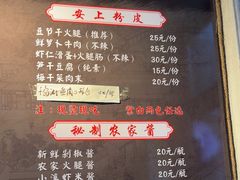 安上粉皮
豆节干火腿（推荐） 25元/份
鲜萝卜牛肉（不辣） 25元/份
虾仁滑蛋+火腿肠（不辣） 30元/份
笋干豆腐（纯素） 15元/份
梅干菜肉末 20元/份
注：现蒸现浇
秘制农家酱
新鲜剁椒酱 20元/瓶
农家火腿酱 20元/瓶
小溪虾米酱 20元/瓶